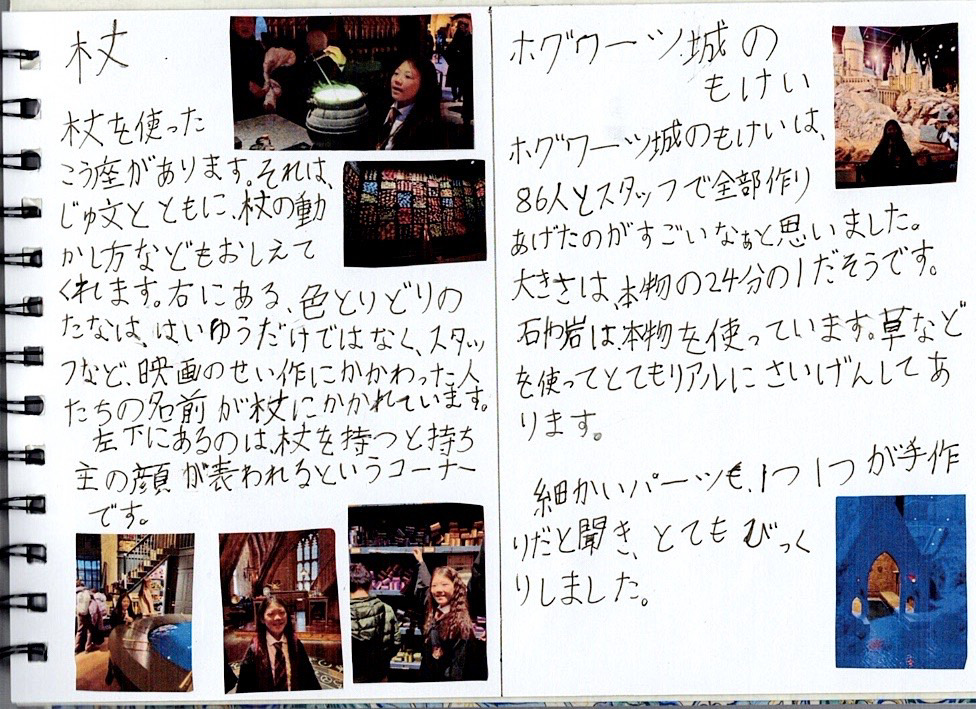 杖
杖を使った
こう座があります。それは、
じゅ文とともに、杖の動
かし方などもおしえて
くれます。右にある、色とりどりの
たなは、はいゆうだけではなく、スタッ
フなど、映画のせい作にかかわった人
たちの名前が杖にかかれています。
左下にあるのは、杖を持つと持ち
主の顔が表われるというコーナー
です。
ホグワーツ城の
もけい
ホグワーツ城のもけいは、
86人とスタッフで全部作り
あげたのがすごいなぁと思いました。
大きさは、本物の24分の1だそうです。
石や岩は、本物を使っています。草など
を使ってとてもリアルにさいげんしてあ
ります。
細かいパーツも、1つ1つが手作
りだと聞き、とてもびっく
りしました。